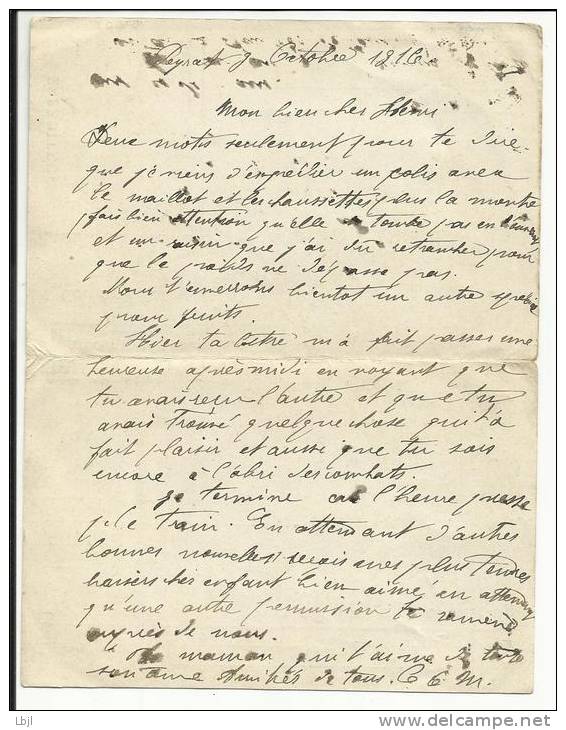 Peyrat 9 Octobre 1916
Mon bien cher Henri
Deux mots seulement pour te dire
que je viens d'expédier un colis avec
le maillot et les chaussettes plus la montre
fais bien attention qu'elle ne tombe pas en
et un raisin que j'ai dû retrancher pour
que le poids ne dépasse pas.
Nous t'enverrons bientot un autre
pour fruits.
Hier ta lettre m'a fait passer une
heureuse après midi en voyant que
tu avais reçu l'autre et que tu
avais trouvé quelque chose qui t'a
fait plaisir et aussi que tu sois
encore à l'abri des combats.
Je termine car l'heure presse
p. le train. En attendant d'autres
bonnes nouvelles reçois mes plus tendres
baisers cher enfant bien aimé en attendant
qu'une autre permission te ramène
auprès de nous.
Ta maman qui t'aime de toute
son âme Amitiés de tous. C C M.
Lbjl
http://www.delcampe.net